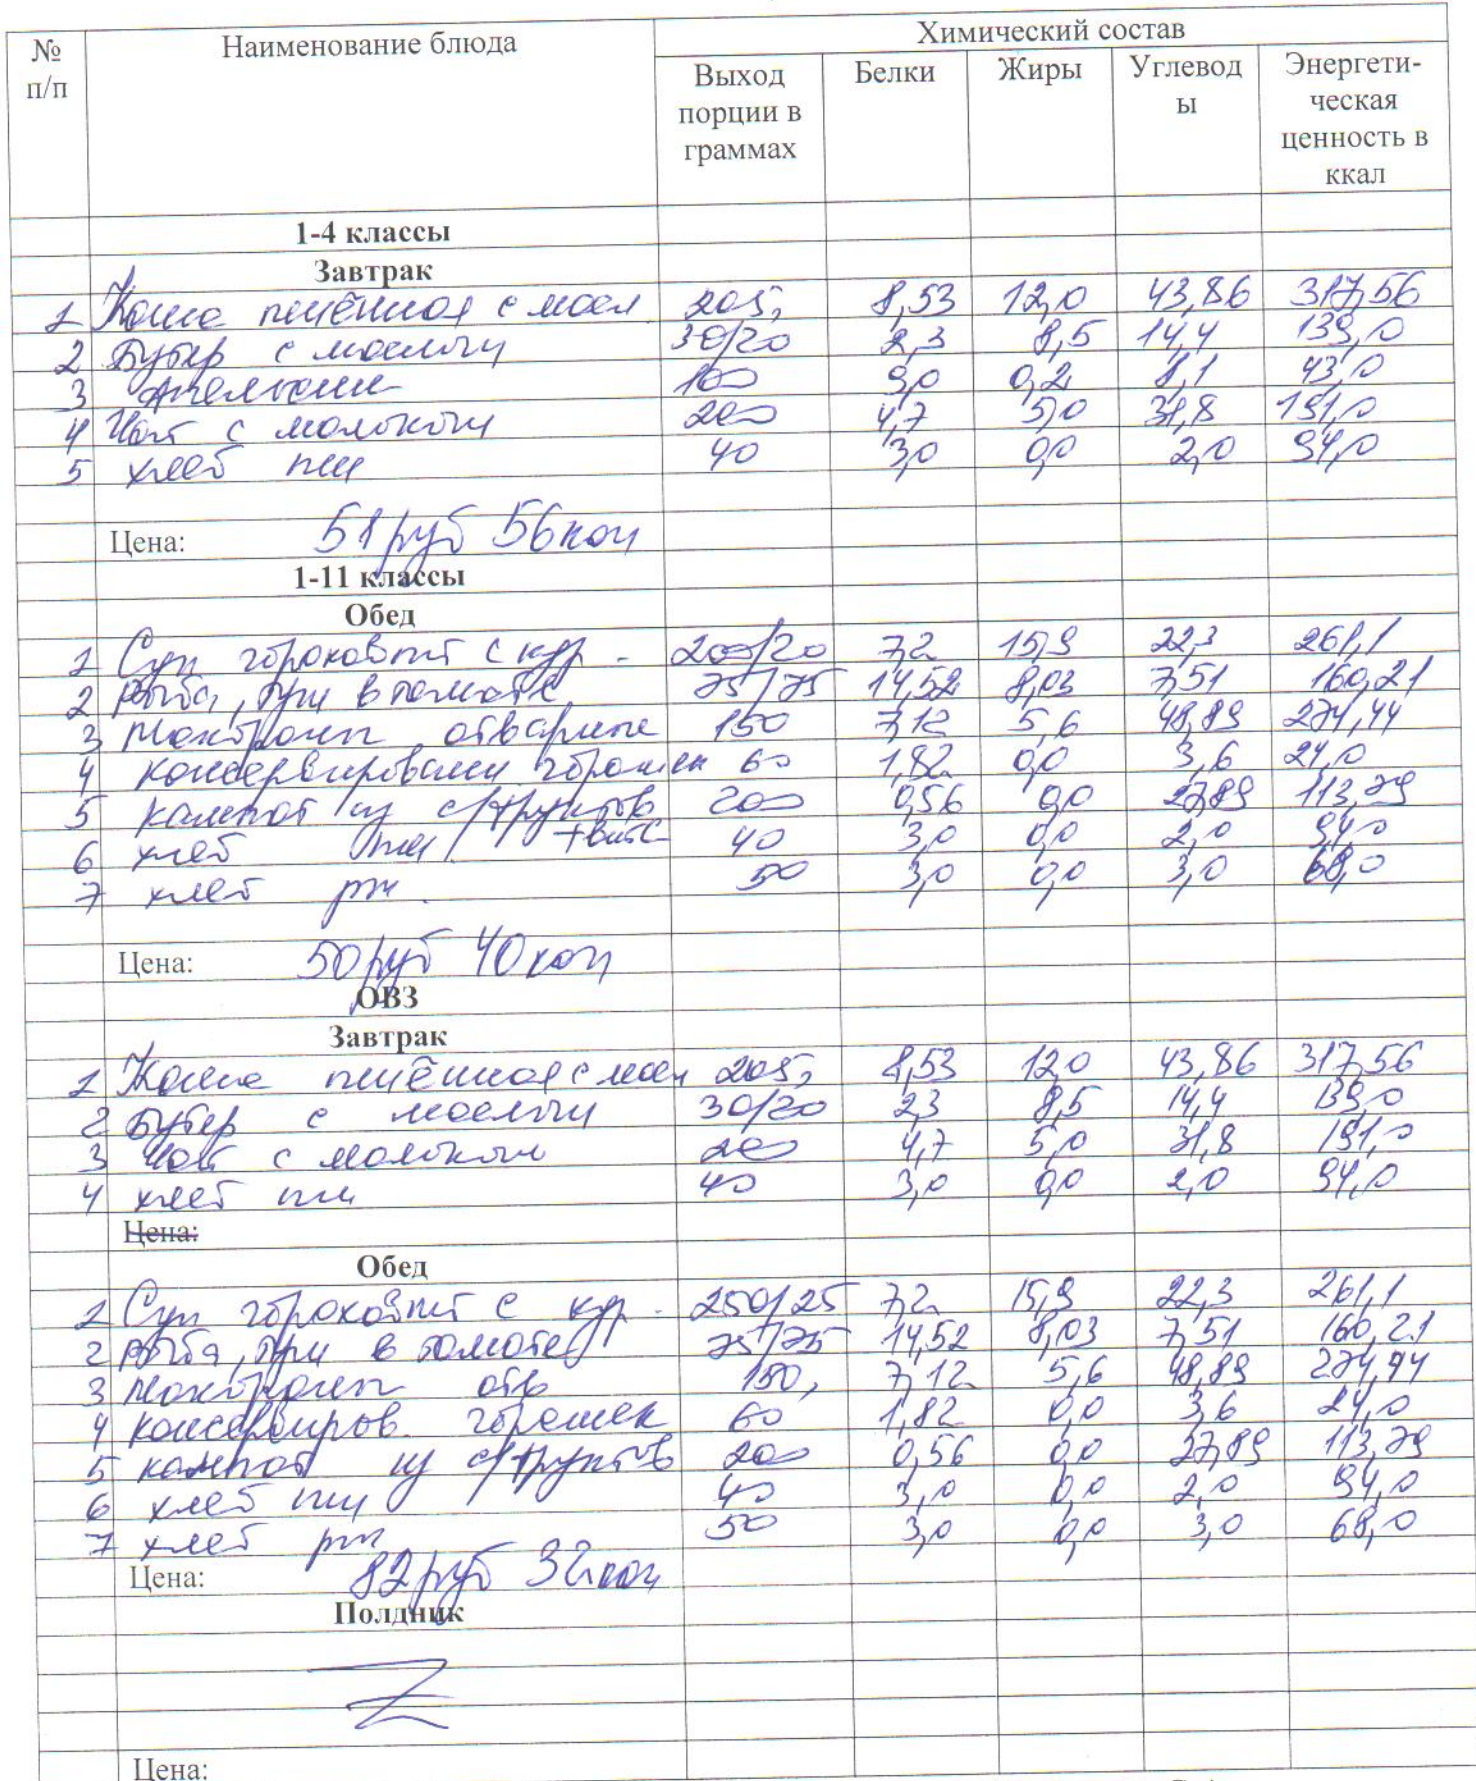 № п/п Наименование блюда Химический состав
Выход порции в граммах Белки Жиры Углеводы Энергетическая ценность в ккал
1-4 классы
Завтрак
1 Каша пшённая с масл 205, 8,53 12,0 43,86 317,56
2 Бутер с маслом 30/20 2,3 8,5 14,4 139,0
3 Апельсин 100 9,0 0,2 8,1 43,0
4 Чай с молоком 200 4,7 5,0 31,8 191,0
5 хлеб пш 40 3,0 0,0 2,0 94,0
Цена: 51 руб 56 коп
1-11 классы
Обед
1 Суп гороховый с кур. 200/20 7,2 15,9 22,3 261,1
2 рыба, при в томате 75/75 14,52 8,03 7,51 160,21
3 макароны отварные 150 7,12 5,6 48,89 274,44
4 консервировани горошек 60 1,82 0,0 3,6 24,0
5 кампот из с/фруктов 200 0,56 0,0 27,89 113,79
6 хлеб пш +витс 40 3,0 0,0 2,0 94,0
7 хлеб рж. 50 3,0 0,0 3,0 68,0
Цена: 50 руб 40 коп
ОВЗ
Завтрак
1 Каша пшённая с масл 205, 8,53 12,0 43,86 317,56
2 Бутер с маслом 30/20 2,3 8,5 14,4 139,0
3 Чай с молоком 200 4,7 5,0 31,8 191,0
4 хлеб пш 40 3,0 0,0 2,0 94,0
Цена:
Обед
1 Суп гороховый с кур. 250/25 7,2 15,9 22,3 261,1
2 рыба, при в томате 75/75 14,52 8,03 7,51 160,21
3 макароны отв 150, 7,12 5,6 48,89 274,44
4 консервиров. горошек 60 1,82 0,0 3,6 24,0
5 кампот из с/фруктов 200 0,56 0,0 27,89 113,79
6 хлеб пш 40 3,0 0,0 2,0 94,0
7 хлеб рж 50 3,0 0,0 3,0 68,0
Цена: 82 руб 32 коп
Полдник
Цена: